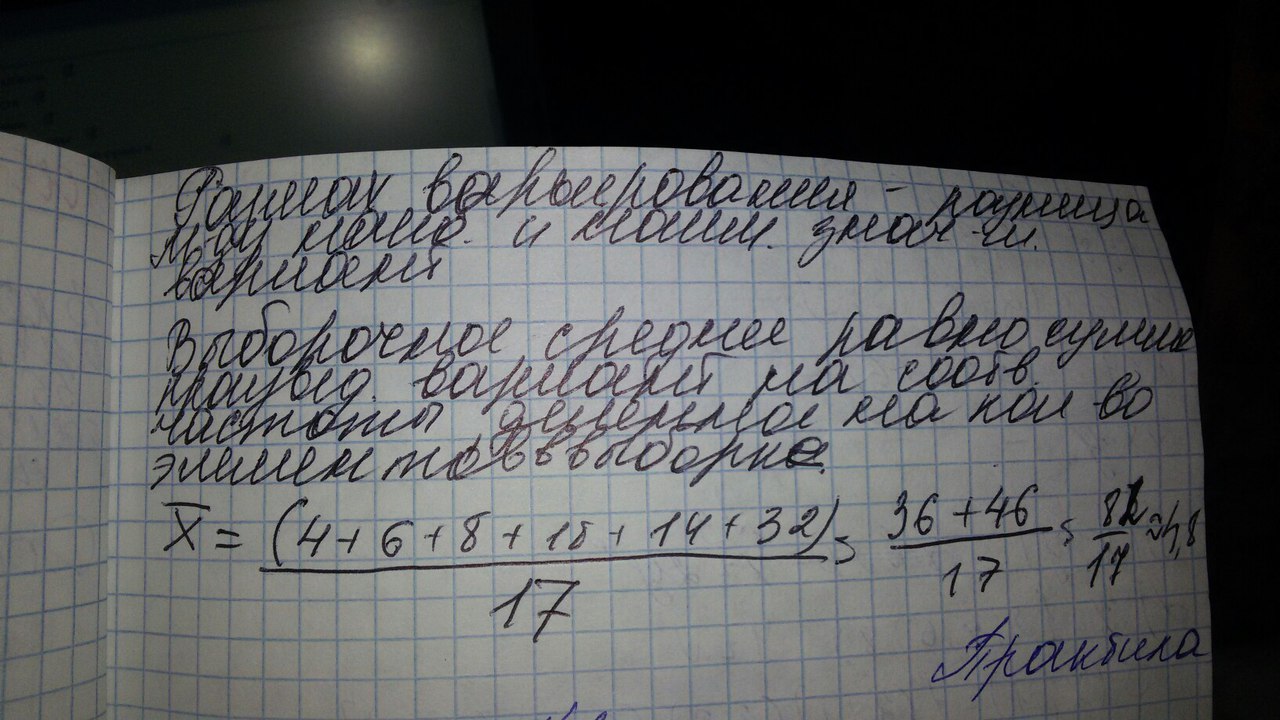 Размах варьирования – разница
м/ду наиб. и наим. знач-ми.
вариант
Выборочное среднее равно сумме
произвед. вариант на соотв.
частоты деленное на кол-во
элементов в выборке.
X̅ = (4+6+8+18+14+32) = 36+46 = 82 ≈4,8
17 17 17
Практика